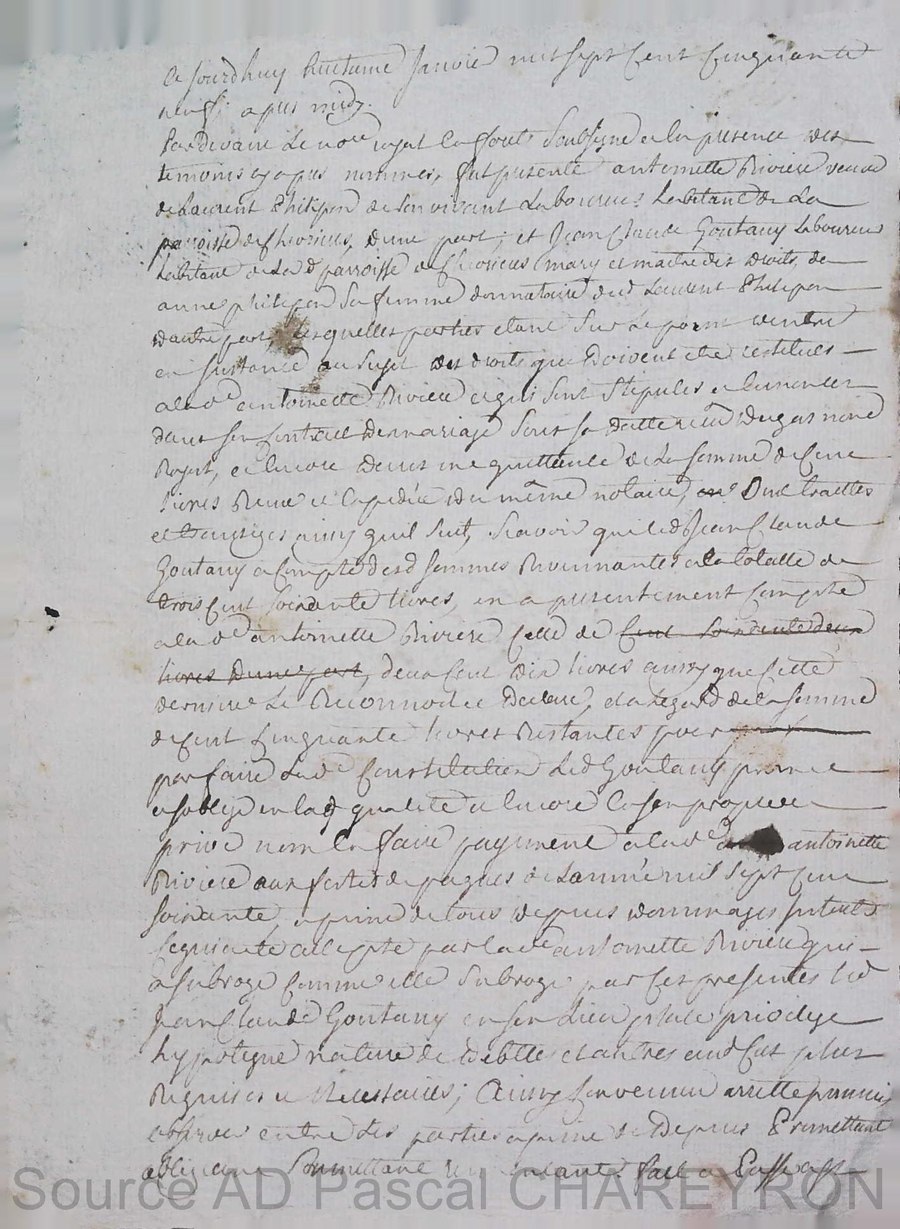 ce jourdhuy huitieme Janvié mil sept Cent Cinquante
neuf, apres midy.
Pardevant Le no.re royal en soubsigné et en presence des
temoins cy apres nommes, fut presente antoinette Riviere veuve
de Laurent Philipon de son vivant Laboureur habitant de La
parroisse de , d'une part; et Jean Claude Goutany Laboureur
habitant de Lad. parroisse de mary et maitre des droits de
anne philipon sa femme donnataire dud. Laurent Philipon
d'autre part Lesquelles parties etant Sur Le point d'entrer
en instance au Sujet des droits que doivent etre restitues
a lad.e antoinette Riviere et qui sont Stipules et enonces
dans son Contract de mariage sous sa datte recu Dugas no.re
Royal, et encore dans une quittance de La somme de Cent
livres Recue et expediée du même notaire, ont traittés
et transiges ainsy quil suit, Scavoir que led. Jean Claude
Goutany a Compte desd. sommes Revennantes a la totalle de
trois Cent soixante livres, en a presentement Compté
a lad.e antoinette Riviere Celle de Cent soixante deux
livres d'une part, deux Cent dix livres ainsy que Cette
derniere Le Reconnoit et Declare, et a legard de la somme
de Cent Cinquante livres Restantes pour
parfaire Lad.e Constitution Led. Goutany promet
et soblige en lad. qualité et encore en son propre et
privé nom en faire payement a lad.e antoinette
Riviere aux festes de paques de Lannée mil Sept Cent
soixante, a peine de tous depens dommages interets
ce qui a eté accepté par lad.e antoinette Riviere qui
a subrogé Comme elle Subroge par Ces presentes led.
Jean Claude Goutany en son Lieu place privilege
hypoteque nature de debtes et autres aud. Cas plus
Requises et Necessaires; Ainsy Convenu arretté promis
observer entre les parties a peine de Depens Promettant
obligeant Soumettant Renoncant fait et Passé
Source AD Pascal CHAREYRON